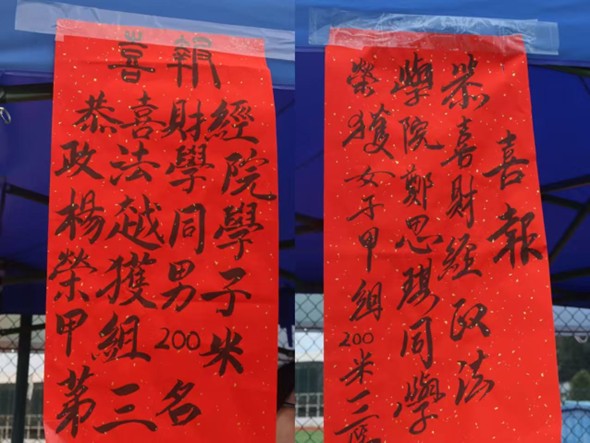 喜報
恭喜財經
政法學院
楊越同學
榮獲男子
甲組200米
第三名
喜報
恭喜財經政法
學院鄭思琪同學
榮獲女子甲組200米三